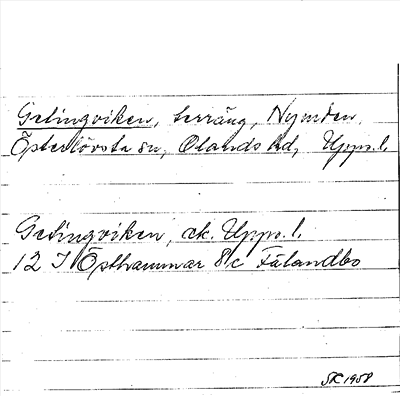 Getingviken, terräng, Nymden,
Österlövsta sn, Olands hd, Upps.l.
Getingviken, ek. Upps.l.
12 I Östhammar 8/c Fälandbo
SK 1958